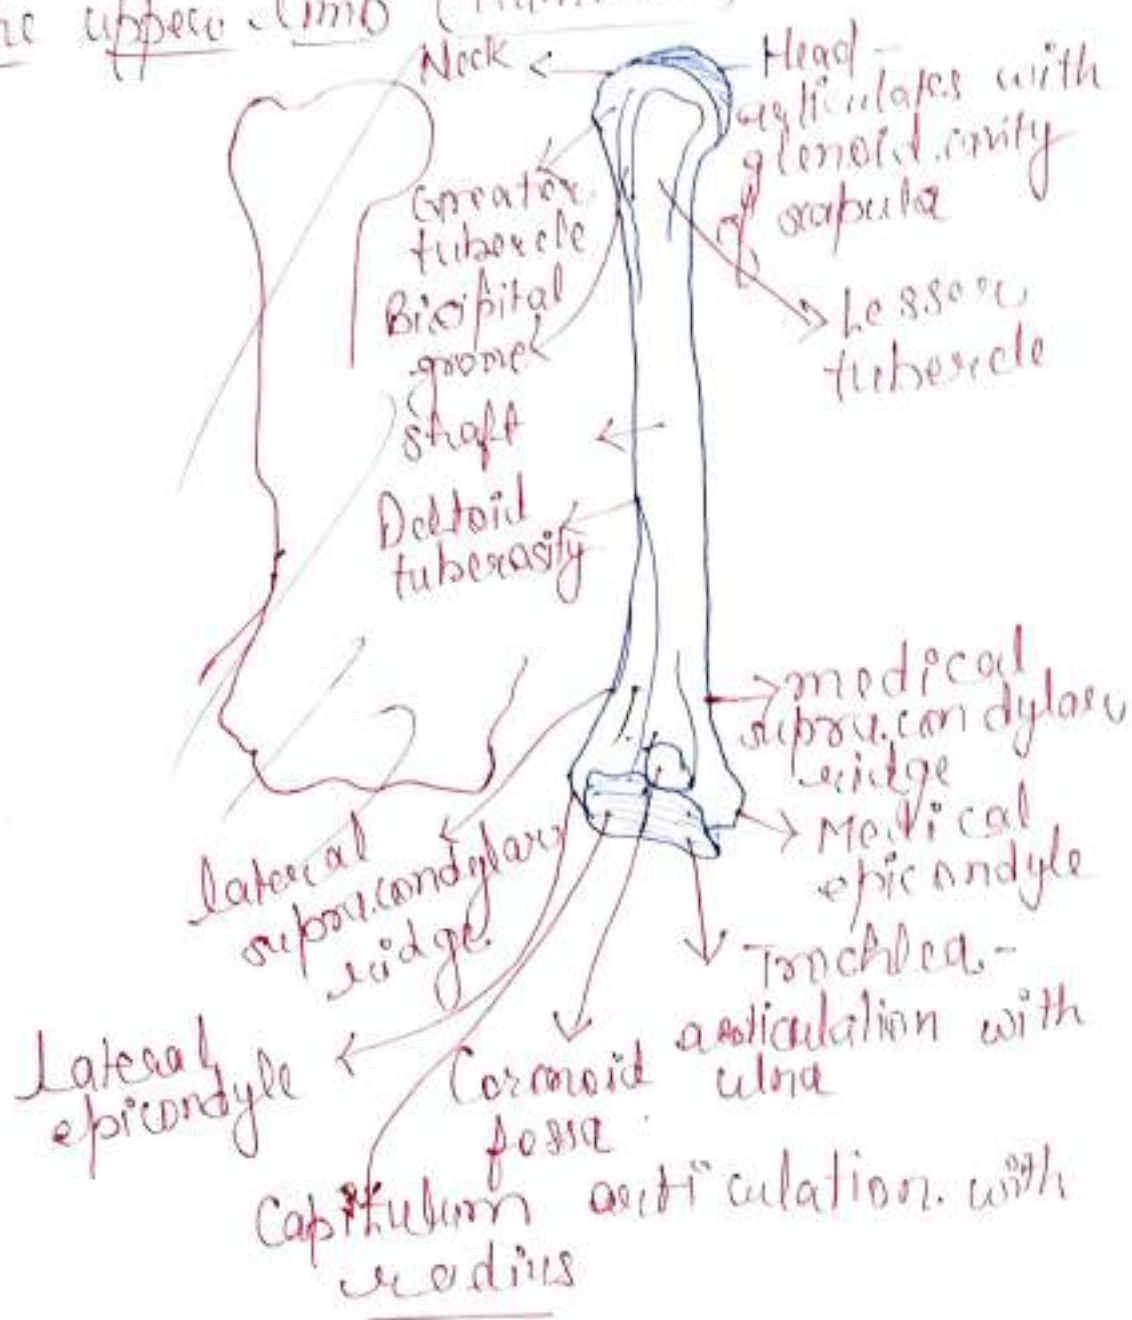 upper limb (
Neck
Head -
articulates with
glenoid cavity
of scapula
Greater
tubercle
Bicipital
groove
Lesser
tubercle
shaft
Deltoid
tuberosity
medical
supra.condylar
ridge
Medical
epicondyle
lateral
supra.condylar
ridge.
Trochlea.-
articulation with
ulna
Lateral
epicondyle
Cornoid
fossa
Capitulum articulation. with
radius